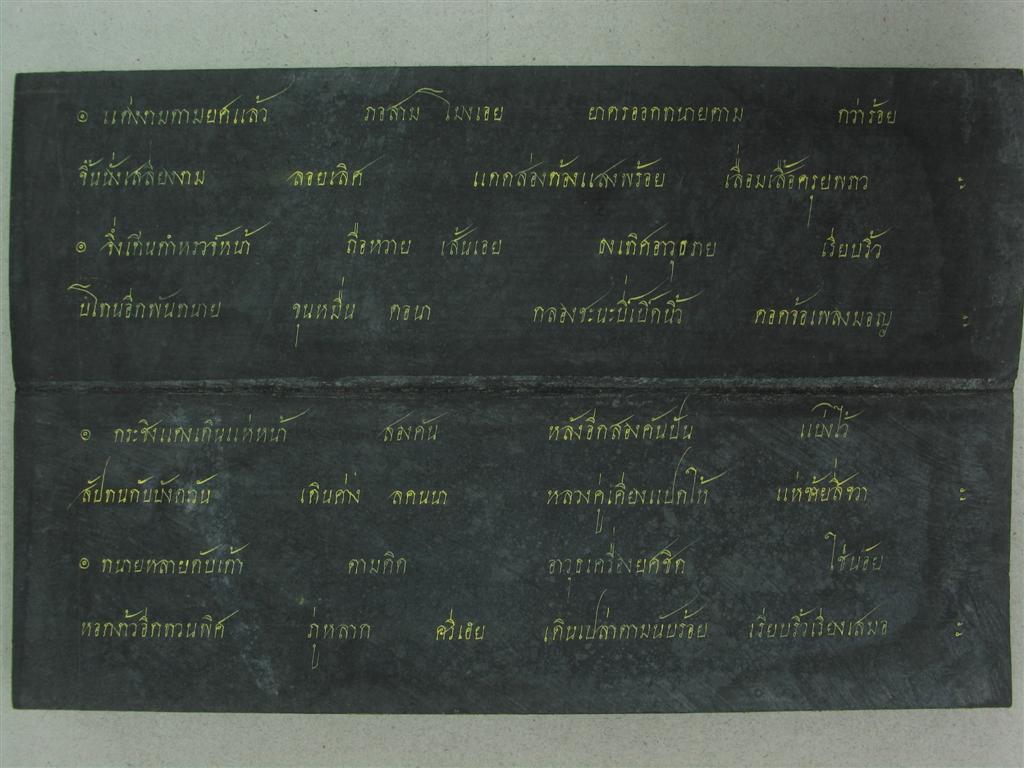 ๏ แต่งงามตามยศแล้ว ภอสาม โมงเอย ยาตรออกทนายตาม กว่าร้อย
ขึ้นนั่งเสลี่ยงงาม ลอยเลิศ แดดส่องต้องแสงพร้อย เลื่อมเสื้อครุยพราว ฯะ
๏ ซึ่งเดินตำหรวจ์หน้า ถือหวาย เส้นเอย ลงเทิศอาวุธภาย เรียบริ้ว
บโทนอีกพันทนาย ขุนหมื่น ดอนา กลองชะนะปี่เปิดนิ้ว คอดจ้อเพลงมอญ ฯะ
๏ กระชิงแดงเดินแห่หน้า สองคัน หลังอีกสองคันปัน แบ่งไว้
สัปทนกับบังตะวัน เดินด่าง ลดนนา หลวงคู่เคียงแปดให้ แห่ซ้ายสี่ขวา ฯะ
๏ ทนายหลายดับเต้า ตามติด อาวุธเครื่องยศชิด ใช่น้อย
หอกง้าวอีกทวนพิศ ภู่หลาก ครี่เฮย เดินเปล่าตามนับร้อย เรียบริ้วเรียงเสมอ ฯะ